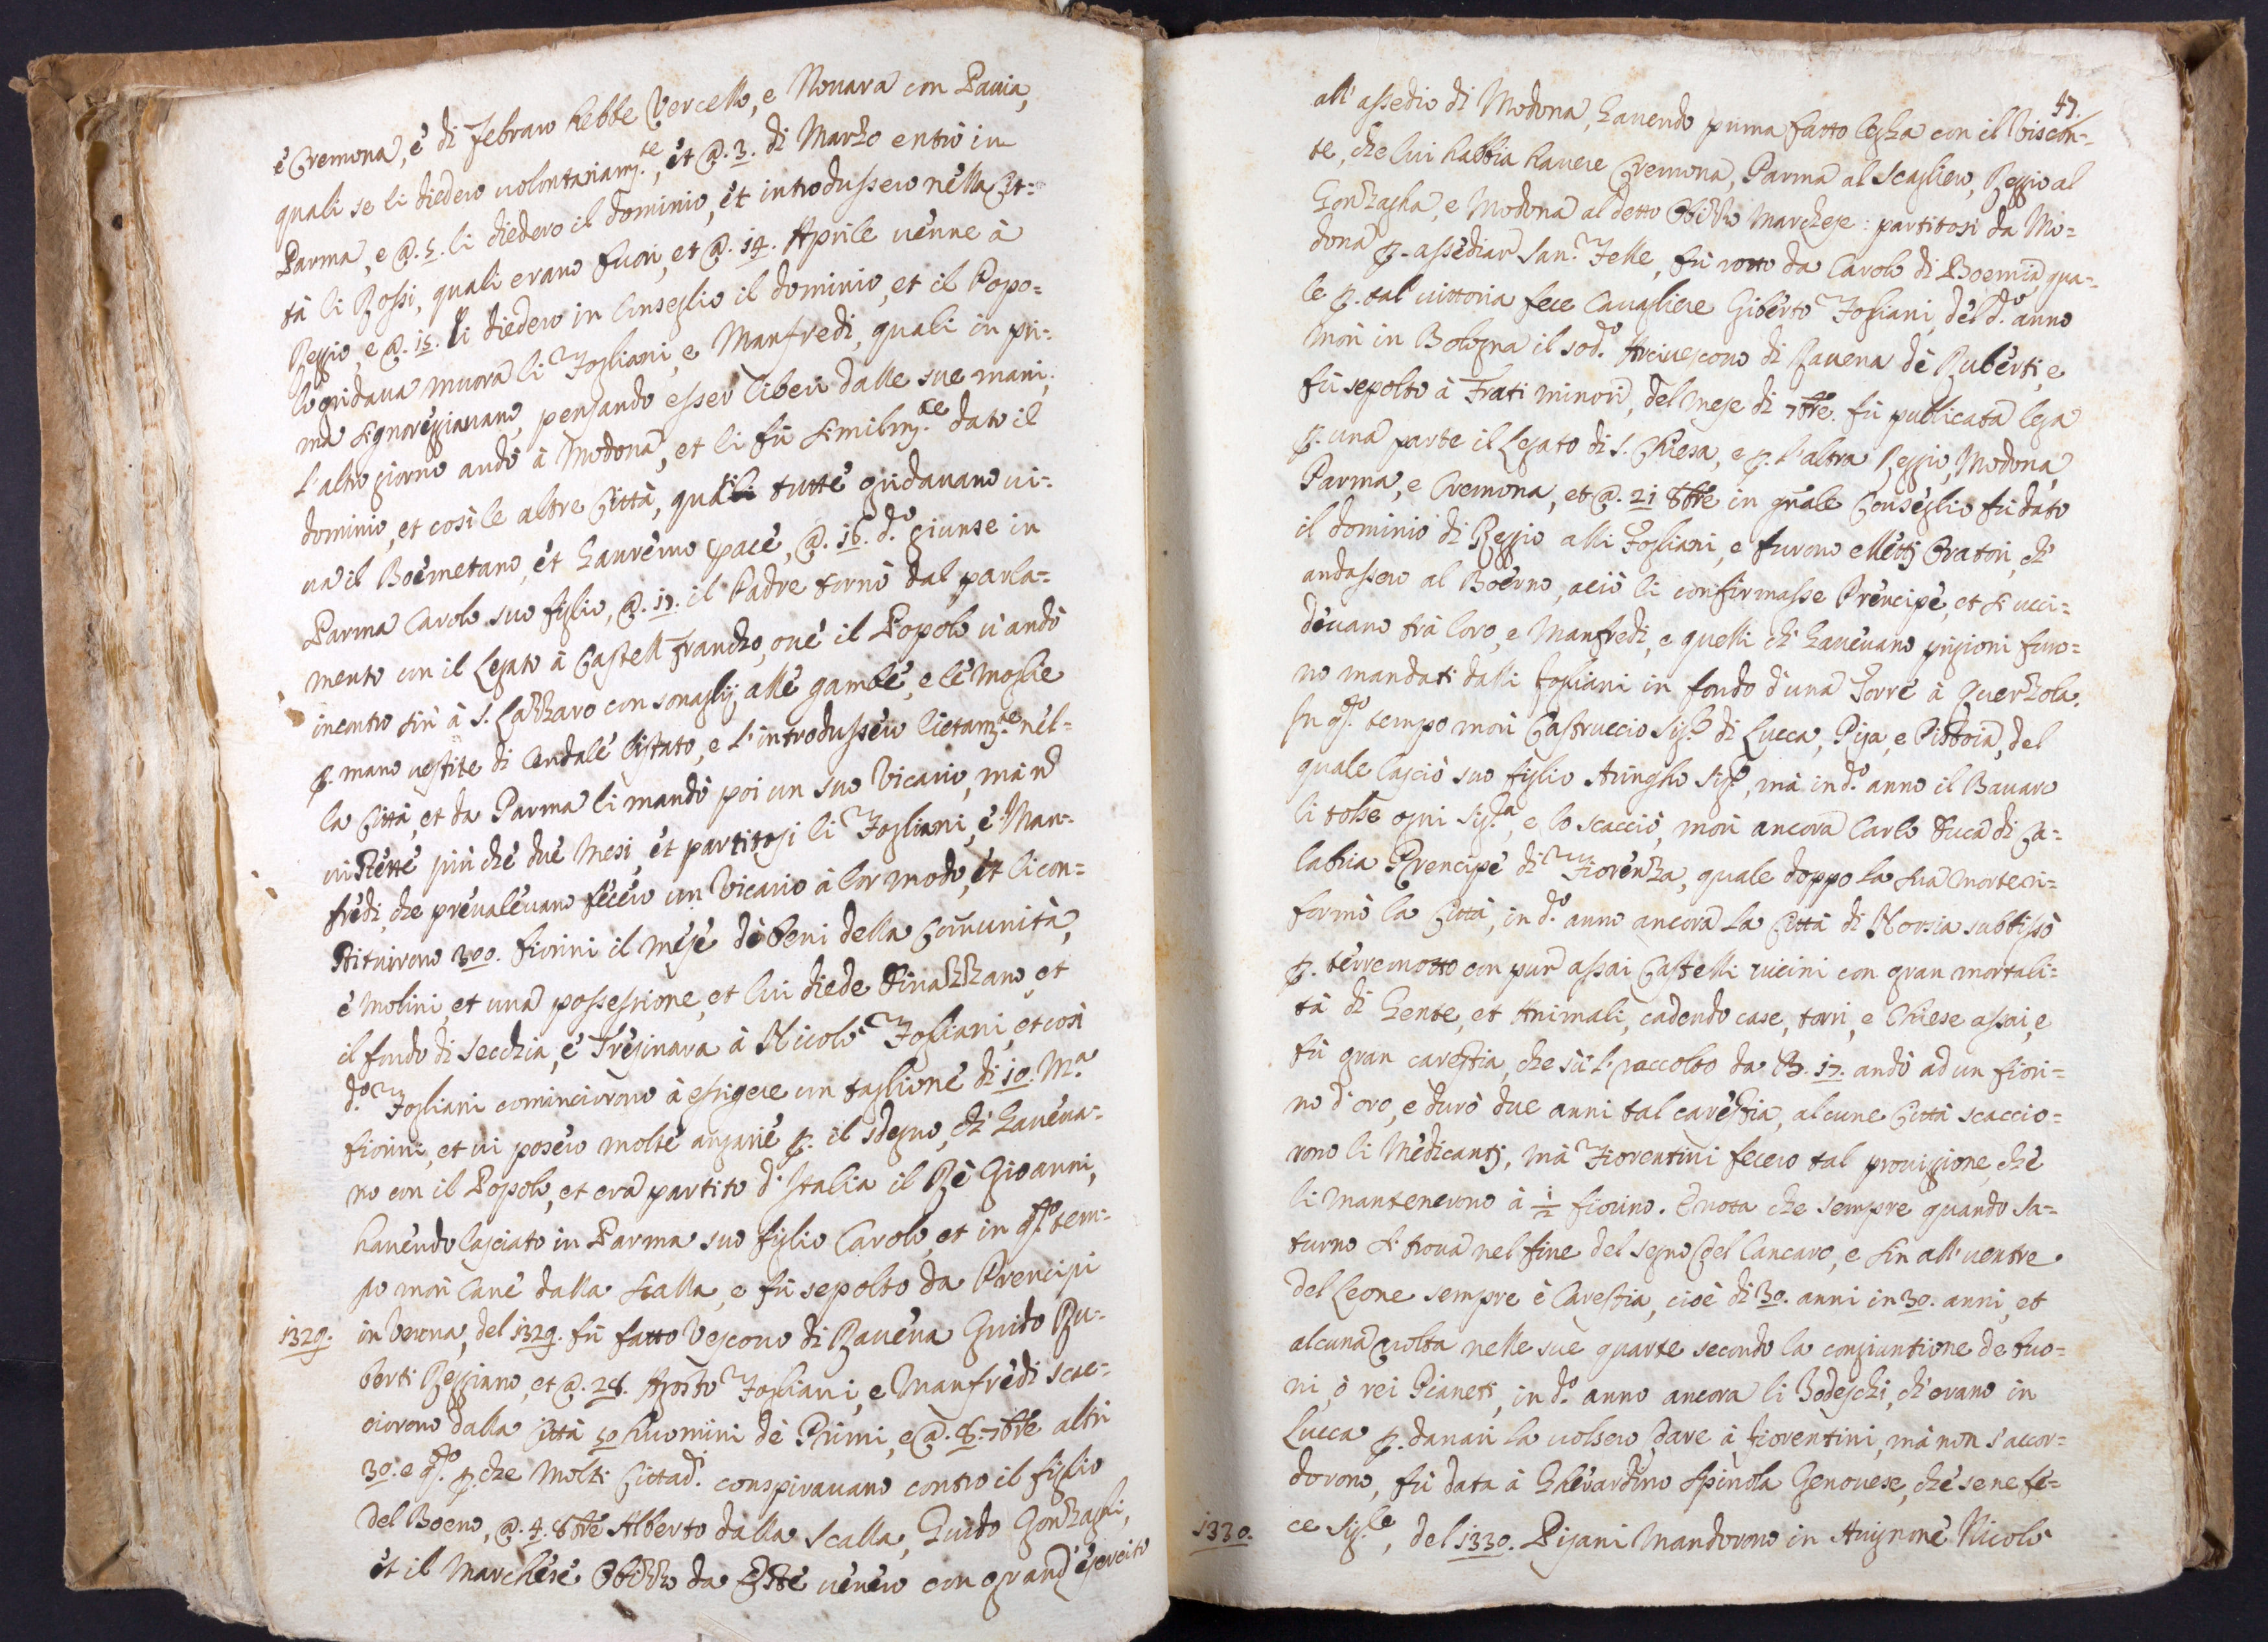 è Cremona, è di Febraro hebbe Vercello, e Novara con Pavia,
quali se li diedero volontariam.te, èt @. 3. di Marzo entrò in
Parma, e @. 5. li diedero il dominio, èt introdussero nella Cit=
tà li Rossi, quali erano fuori, et @. 14. Aprile venne à
Reggio, e @. 15. li diedero in Conseglio il dominio, et il Popo=
lo gridava muora li Fogliani, e Manfredi, quali in pri=
ma signoregiavano, pensando esser liberi dalle sue mani,
l'altro giorno andò à Modona, et li fù similm.te dato il
dominio, et così le altre Città, quali tutte gridavano vi=
va il Boemetano, èt havremo pace, @. 16. d.o giunse in
Parma Carolo suo figlio, @. 17. il Padre tornò dal parla=
mento con il Legato à Castell Francho, ove il Popolo v'andò
incontro sin à S. Lazzaro con sonaglij alle gambe, e le moglie
p. mano vestite di Cendale listato, e l'introdussero lietam.te nel=
la Città, et da Parma li mandò poi un suo Vicario, mà nō
vi stette più che due Mesi, èt partitosi li Fogliani, è Man=
fredi, che prevalevano fecero un Vicario à lor modo, èt li con=
stituirono 300. fiorini il mese dè beni della Com̄unità,
è Molini, et una possessione, et lui diede Dinazzano, et
il fondo di Secchia, è Tresinara à Nicolò Fogliani, et così
d.o Fogliani cominciorono à essigere un taglione di 10. M.a
fiorini, et vi posero molte angarie p. il sdegno, ch' haveva=
no con il Popolo, et era partito d'Italia il Rè Gioanni,
havendo lasciato in Parma suo figlio Carolo, et in q.sto tem=
po morì Cane dalla Scalla, e fù sepolto da Prencipi
1329. in Verona, del 1329. fù fatto Vescovo di Ravena Guido Ru=
berti Reggiano, et @. 28. Agosto Fogliani, e Manfredi scac=
ciorono dalla Città 50 huomini dè Primi, e @. 8. 7bre altri
30. e q.sto p.che Molti Cittad.i conspiravano contro il figlio
del Boemo, @. 4. 8bre Alberto dalla Scalla, Guido Gonzaghi,
èt il Marchese Obizzo da Este venero con grand'esercito
47.
all'assedio di Modona, havendo prima fatto legha con il Viscon=
te, che lui habbia havere Cremona, Parma al Scagliero, Reggio al
Gonzagha, e Modona al detto Obizzo Marchese: partitosi da Mo=
dona p. assediar San. Felle, fù rotto da Carolo di Boemia, qua=
le p. tal vittoria fece Cavagliere Giberto Fogliani, del d.o anno
morì in Bologna il sod.o Arcivescovo di Ravena dè Ruberti, e
fù sepolto à Frati minori, del mese di 7bre. fù publicata lega
p. una parte il Legato di S. Chiesa, e p. l'altra Reggio, Modona,
Parma, e Cremona, et @. 21 8bre in g̅nale Conseglio fù dato
il dominio di Reggio alli Fogliani, e furono elletti Oratori, ch'
andassero al Boemo, aciò li confirmasse Prencipe, et s'ucci=
devano trà loro, e Manfredi, e quelli ch' havevano prigioni furo=
no mandati dalli Fogliani in fondo d'una Torre à Querzola.
In q.sto tempo morì Castruccio Sig.re di Lucca, Pisa, e Pistoia, del
quale lasciò suo figlio Aringho Sig.re, mà in d.o anno il Bavaro
li tolse ogni Sig.ria, e lo scacciò, morì ancora Carlo Duca di Ca=
labria Prencipe di Fiorenza, quale doppo la sua morte ri=
formò la Città, in d.o anno ancora la Città di Norsia subbissò
p. terremotto con pur assai Castelli vicini con gran mortali=
tà di Gente, et Animali, cadendo case, torri, e Chiese assai, e
fù gran carestia, che sù l'raccolto da B. 17. andò ad un fiori=
no d'oro, e durò due anni tal carestia, alcune Città scaccio=
rono li Medicanti, mà Fiorentini fecero tal provissione, che
li mantenerono à 1/2 fiorino. E nota che sempre quando Sa=
turno si trova nel fine del segno del Cancaro, e sin all'ventre
del Leone sempre è Carestia, cioè di 30. anni in 30. anni, et
alcuna volta nelle sue quarte secondo la congiuntione de buo=
ni, ò rei Pianeti, in d.o anno ancora li Todeschi, ch'erano in
Lucca p. danari la volsero dare à Fiorentini, mà non s'accor=
dorono, fù data à Gherardino Spinola Genovese, che se ne fe=
1330. ce Sig.re, del 1330. Pisani mandorono in Avignone Nicolò